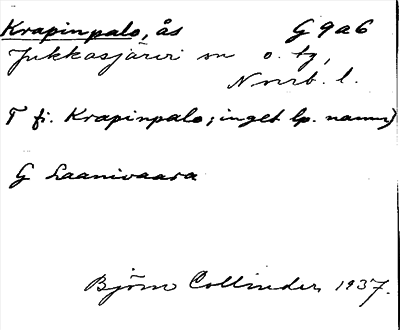 Krapinpalo, ås G 9 a 6
Jukkasjärvi sn o. tg,
Norrb. l.
T fi. Krapinpalo; inget lp. namn)
G Laanivaara
Björn Collinder 1937.